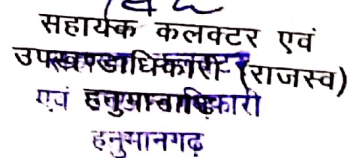 सहायक कलक्टर एवं
उपखण्डाधिकारी (राजस्व)
एवं
हनुमानगढ़